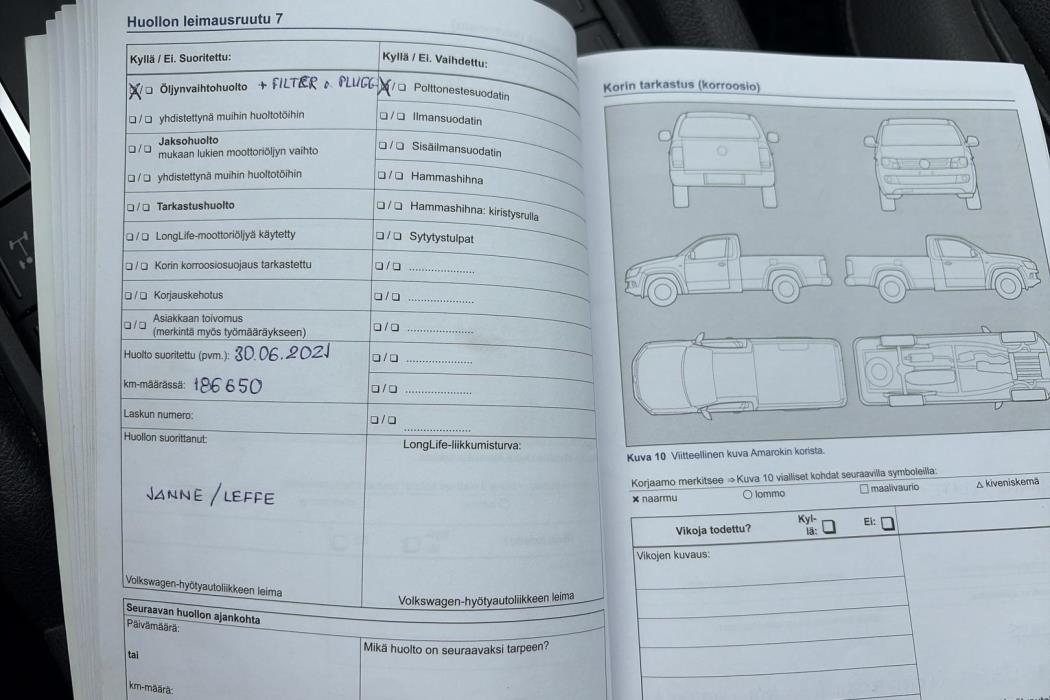 Huollon leimausruutu 7
Kyllä / Ei. Suoritettu:
Öljynvaihtohuolto + FILTER o. PLUGG
yhdistettynä muihin huoltotöihin
Jaksohuolto
mukaan lukien moottoriöljyn vaihto
yhdistettynä muihin huoltotöihin
Tarkastushuolto
LongLife-moottoriöljyä käytetty
Korin korroosiosuojaus tarkastettu
Korjauskehotus
Asiakkaan toivomus
(merkintä myös työmääräykseen)
Huolto suoritettu (pvm.): 30.06.2021
km-määrässä: 186650
Laskun numero:
Huollon suorittanut:
JANNE / LEFFE
Volkswagen-hyötyautoliikkeen leima
Kyllä / Ei. Vaihdettu:
Polttonestesuodatin
Ilmansuodatin
Sisäilmansuodatin
Hammashihna
Hammashihna: kiristysrulla
Sytytystulpat
LongLife-liikkumisturva:
Volkswagen-hyötyautoliikkeen leima
Seuraavan huollon ajankohta
Päivämäärä:
tai
km-määrä:
Mikä huolto on seuraavaksi tarpeen?
Korin tarkastus (korroosio)
Kuva 10 Viitteellinen kuva Amarokin korista.
Korjaamo merkitsee ⇒ Kuva 10 vialliset kohdat seuraavilla symboleilla:
× naarmu ○ lommo □ maalivaurio △ kiveniskemä
Vikoja todettu? Kyl-
lä: Ei:
Vikojen kuvaus: